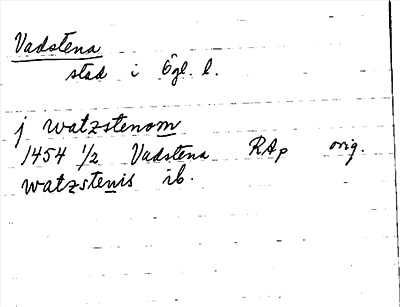 Vadstena
stad i Ögl. l.
j watzstenom
1454 1/2 Vadstena RAp orig.
watzstenis ib.